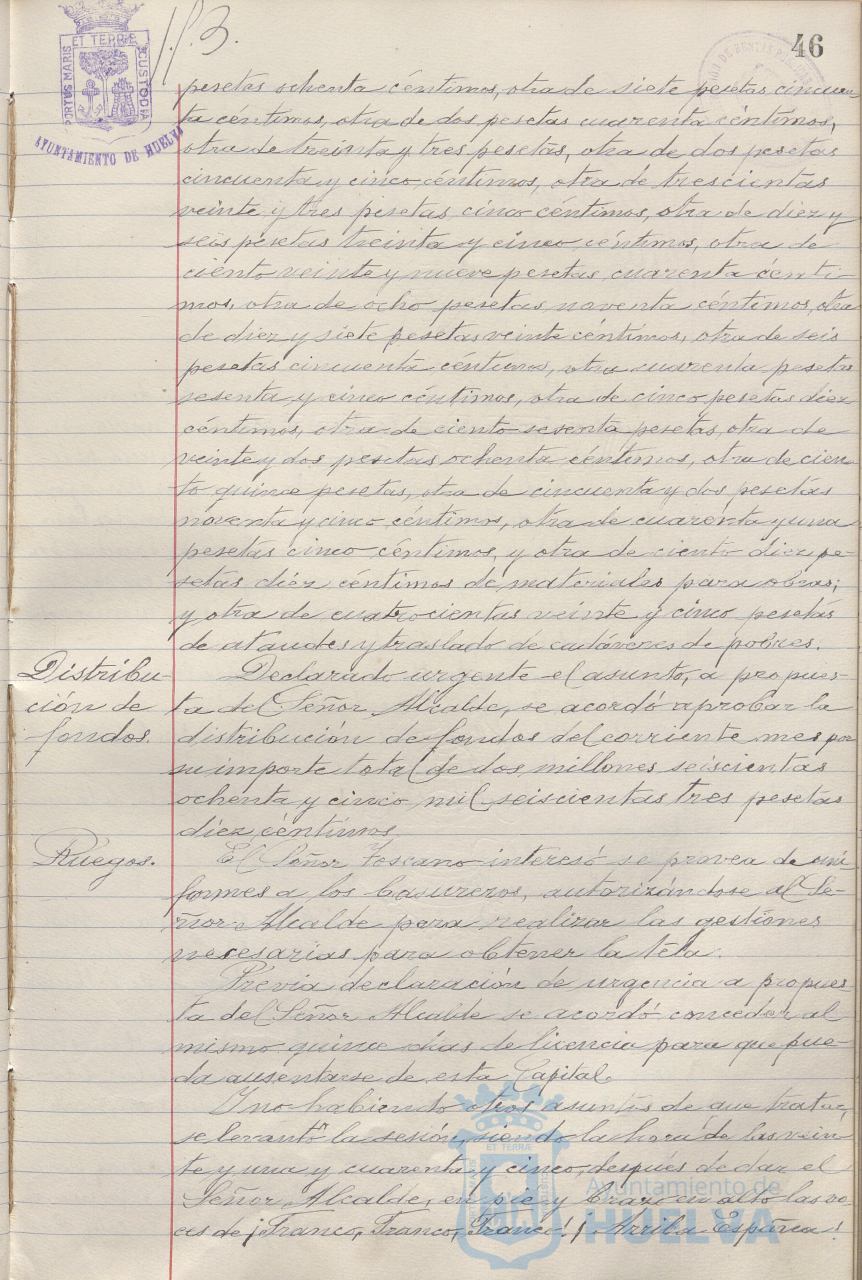 ET TERRÆ
PORTUS MARIS
CUSTODIA
AYUNTAMIENTO DE HUELVA
46
pesetas ochenta céntimos, otra de siete pesetas cincuen-
ta céntimos, otra de dos pesetas cuarenta céntimos,
otra de treinta y tres pesetas, otra de dos pesetas
cincuenta y cinco céntimos, otra de trescientas
veinte y tres pesetas cinco céntimos, otra de diez y
seis pesetas treinta y cinco céntimos, otra de
ciento veinte y nueve pesetas cuarenta cénti-
mos, otra de ocho pesetas noventa céntimos, otra
de diez y siete pesetas veinte céntimos, otra de seis
pesetas cincuenta céntimos, otra cuarenta pesetas
sesenta y cinco céntimos, otra de cinco pesetas diez
céntimos, otra de ciento sesenta pesetas, otra de
veinte y dos pesetas ochenta céntimos, otra de cien-
to quince pesetas, otra de cincuenta y dos pesetas
noventa y cinco céntimos, otra de cuarenta y una
pesetas cinco céntimos, y otra de ciento diez pe-
setas diez céntimos de materiales para obras;
y otra de cuatrocientas veinte y cinco pesetas
de ataudes y traslado de cadáveres de pobres.
Distribu-
ción de
fondos.
Declarado urgente el asunto, a propues-
ta del Señor Alcalde, se acordó aprobar la
distribución de fondos del corriente mes por
su importe total de dos millones seiscientas
ochenta y cinco mil seiscientas tres pesetas
diez céntimos.
Ruegos.
El Señor Toscano interesó se provea de uni-
formes a los basureros, autorizándose al Se-
ñor Alcalde para realizar las gestiones
necesarias para obtener la tela.
Previa declaración de urgencia a propues-
ta del Señor Alcalde se acordó conceder al
mismo quince días de licencia para que pue-
da ausentarse de esta Capital.
Y no habiendo otros asuntos de que tratar,
se levantó la sesión, siendo la hora de las vein-
te y una y cuarenta y cinco, después de dar el
Señor Alcalde, en pie y brazo en alto las vo-
ces de ¡Franco, Franco, Franco! ¡Arriba España!
ET TERRÆ
Ayuntamiento de
HUELVA